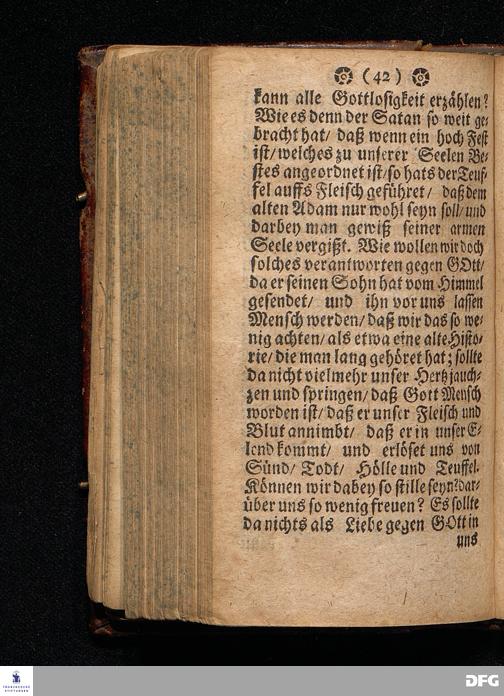 (42)
kann alle Gottlosigkeit erzählen?
Wie es denn der Satan so weit ge-
bracht hat/ daß wenn ein hoch Fest
ist/ welches zu unserer Seelen Be-
stes angeordnet ist/ so hats der Teuf-
fel auffs Fleisch geführet/ daß dem
alten Adam nur wohl seyn soll/ und
darbey man gewiß seiner armen
Seele vergißt. Wie wollen wir doch
solches verantworten gegen GOtt/
da er seinen Sohn hat vom Himmel
gesendet/ und ihn vor uns lassen
Mensch werden/ daß wir das so we-
nig achten/ als etwa eine alte Histo-
rie/ die man lang gehöret hat; sollte
da nicht vielmehr unser Hertz jauch-
zen und springen/ daß Gott Mensch
worden ist/ daß er unser Fleisch und
Blut annimbt/ daß er in unser E-
lend kommt/ und erlöset uns von
Sünd/ Todt/ Hölle und Teuffel.
Können wir dabey so stille seyn? dar-
über uns so wenig freuen? Es sollte
da nichts als Liebe gegen GOtt in
uns
FRANCKESCHE
STIFTUNGEN
DFG